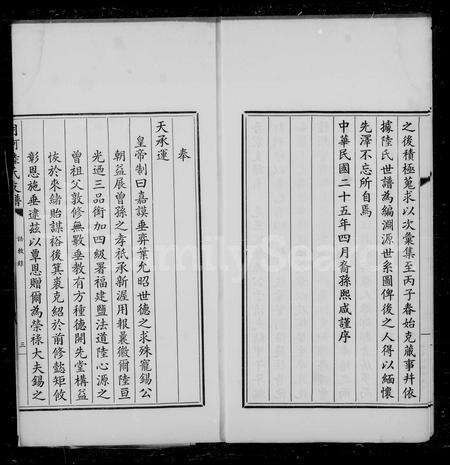 之後積極蒐求以次彙集至丙子春始克蕆事幷依
據陸氏世譜為編淵源世系圖俾後之人得以緬懷
先澤不忘所自焉
中華民國二十五年四月裔孫熙咸謹序
奉
天承運
皇帝制曰嘉謨垂弈葉允昭世德之求殊寵錫公
朝益展曾孫之孝祇承新渥用報襃徽爾陸亘
光迺三品銜加四級署福建鹽法道陸心源之
曾祖父敦修無斁垂教有方種德開先堂構益
恢於來緒貽謀裕後箕裘克紹於前修懿矩攸
彰恩施垂逮茲以覃恩贈爾為榮祿大夫錫之
氏支譜
誥敕錄
三
FamilySearch